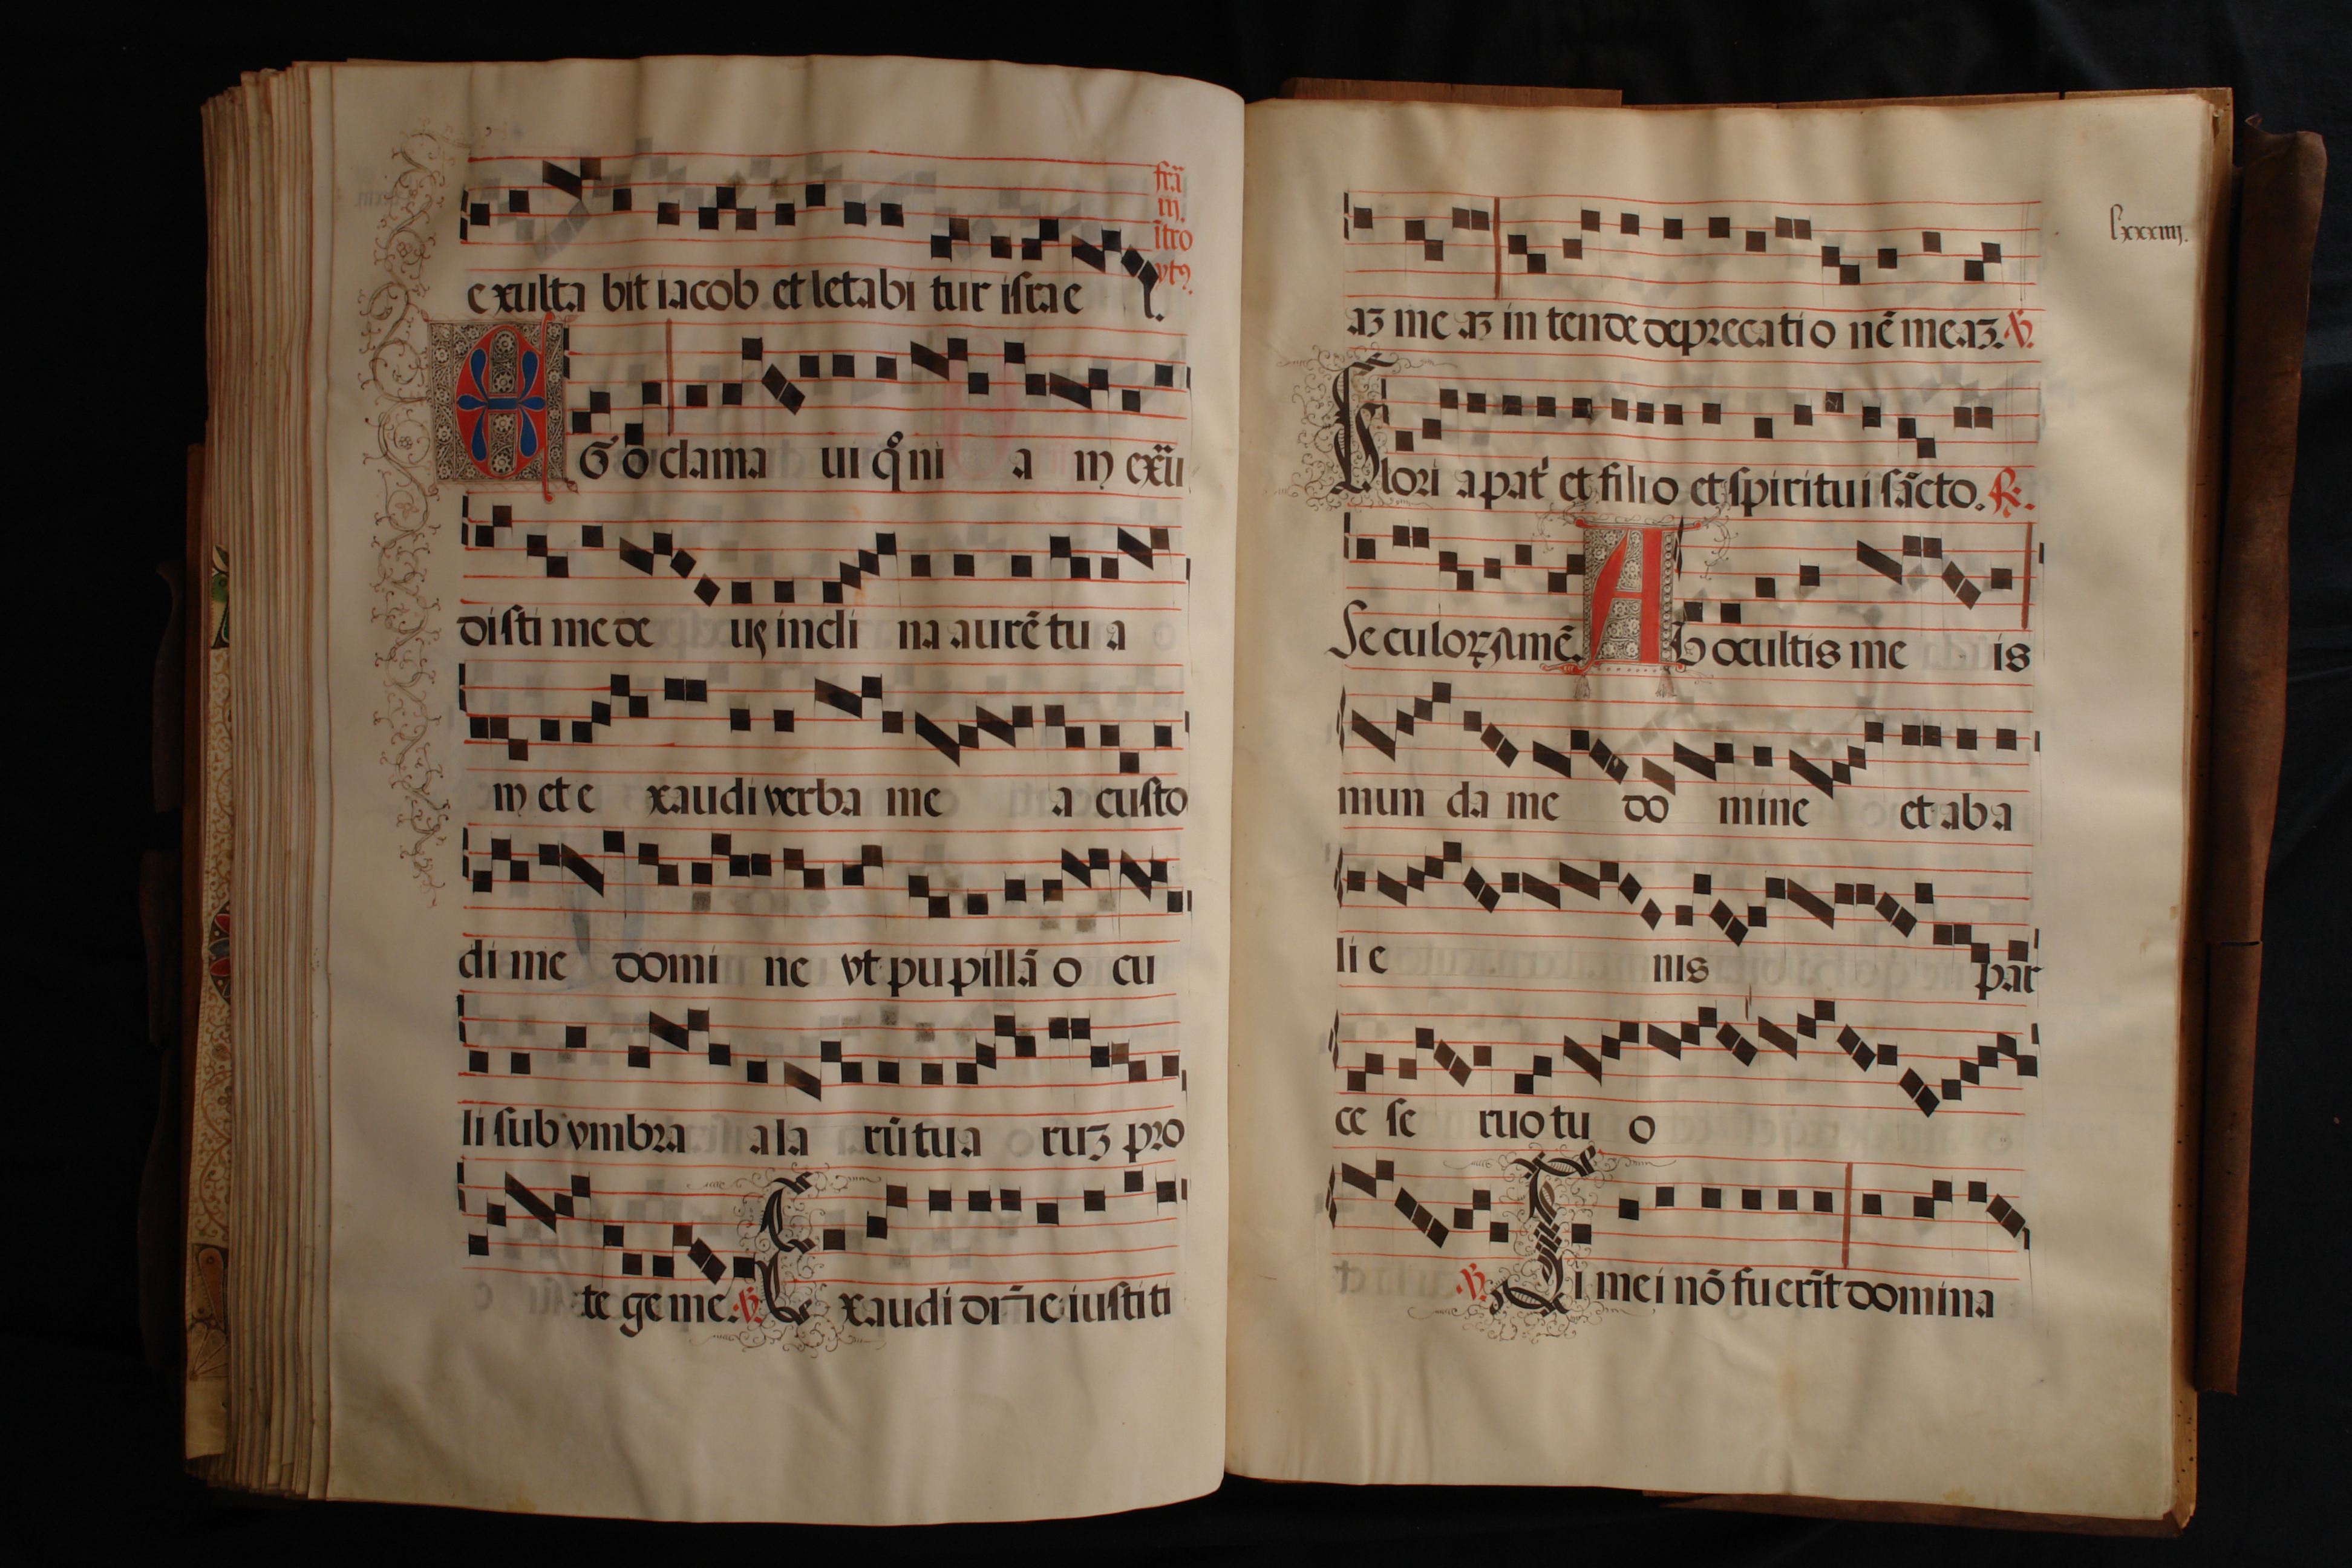 fr̃a
iij.
ĩtro
ytꝯ.
exulta bit iacob et letabi tur israe l.
EGo clama ui qͦni a m exãu
disti me de us incli na aurẽ tu a
m et e xaudi verba me a custo
di me domi ne vt pu pillã o cu
li sub vmbra ala rũ tua ruʒ pro
te ge me. ℣. Exaudi dñe iustiti
lxxxiiij.
aʒ me aʒ in tende deprecati o nẽ meaʒ. ℣.
Glori a pat' et filio et spiritui sãcto. ℟.
Seculoꝝ amẽ. Ab ocultis me is
mun da me do mine et ab a
li e nis par
ce se ruo tu o
℣. Si mei nõ fuerĩt domina